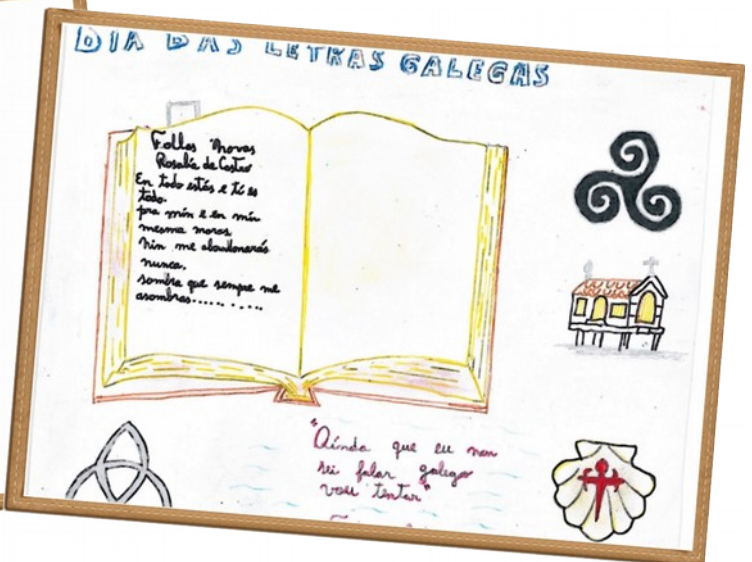 DIA DAS LETRAS GALEGAS
Follas Novas
Rosalía de Castro
En todo estás e tú es
todo.
pra min e en min
mesma moras,
nin me abandonarás
nunca,
sombra que sempre me
asombras..........
"Ainda que eu non
sei falar galego
vou tentar"